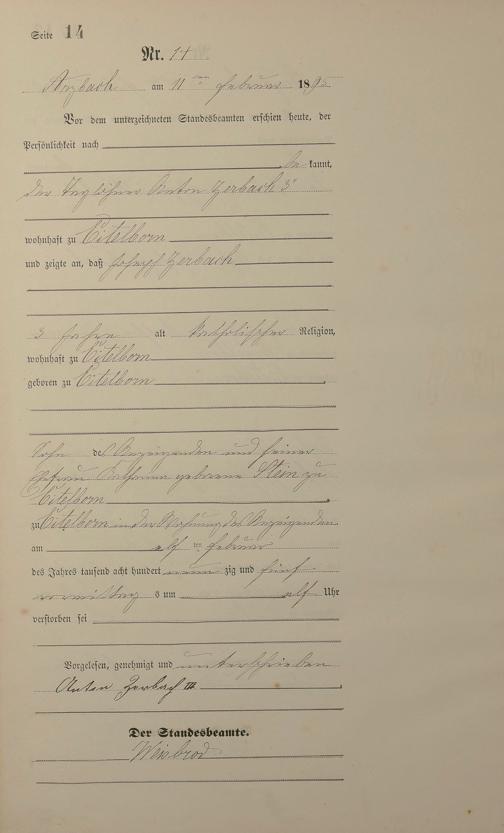 Seite 14
Nr. 14
Arzbach am 11ten Februar 1895
Vor dem unterzeichneten Standesbeamten erschien heute, der
Persönlichkeit nach
be kannt,
der Taglöhner Anton Zerbach 3r
wohnhaft zu Eitelborn
und zeigte an, daß Joseph Zerbach
3 Jahre alt katholischer Religion,
wohnhaft zu Eitelborn
geboren zu Eitelborn
Sohn des Anzeigenden und seiner
Ehefrau geborene Stein zu
Eitelborn
zu Eitelborn in der Wohnung des Anzeigenden
am elften Februar
des Jahres tausend acht hundert neun zig und fünf
vormittag s um elf Uhr
verstorben sei
Vorgelesen, genehmigt und unterschrieben
Anton Zerbach III
Der Standesbeamte.
Weisbrod